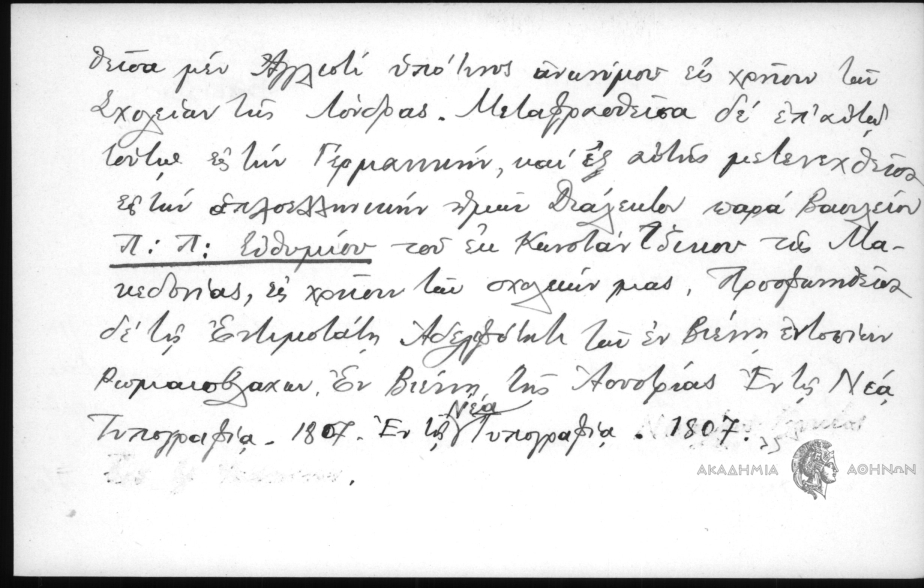 θεῖσα μέν Ἀγγλιστί ὑπό τινος ἀνωνύμου εἰς χρῆσιν τῶν
Σχολείων τῆς Λόνδρας. Μεταφρασθεῖσα δέ ἐπ' αὐτῷ
τούτῳ εἰς τήν Γερμανικήν, καί ἐξ αὐτῆς μετενεχθεῖσα
εἰς τήν ἁπλοελληνικήν ἡμῶν διάλεκτον παρά Βασιλείου
Π: Π: Εὐθυμίου τοῦ ἐκ Κωνστάντζικου τῆς Μα-
κεδονίας, εἰς χρῆσιν τῶν σχολείων μας. Προσφωνηθεῖσα
δέ τῇ Ἐντιμοτάτῃ Ἀδελφότητι τῶν ἐν Βιέννῃ ἐντοπίων
Ρωμαιοβλάχων. Ἐν Βιέννῃ τῆς Αουστρίας Ἐν τῇ Νέᾳ
Τυπογραφίᾳ. 1807. Ἐν τῇ Νέᾳ Τυπογραφίᾳ. 1807.
ΑΚΑΔΗΜΙΑ ΑΘΗΝΩΝ